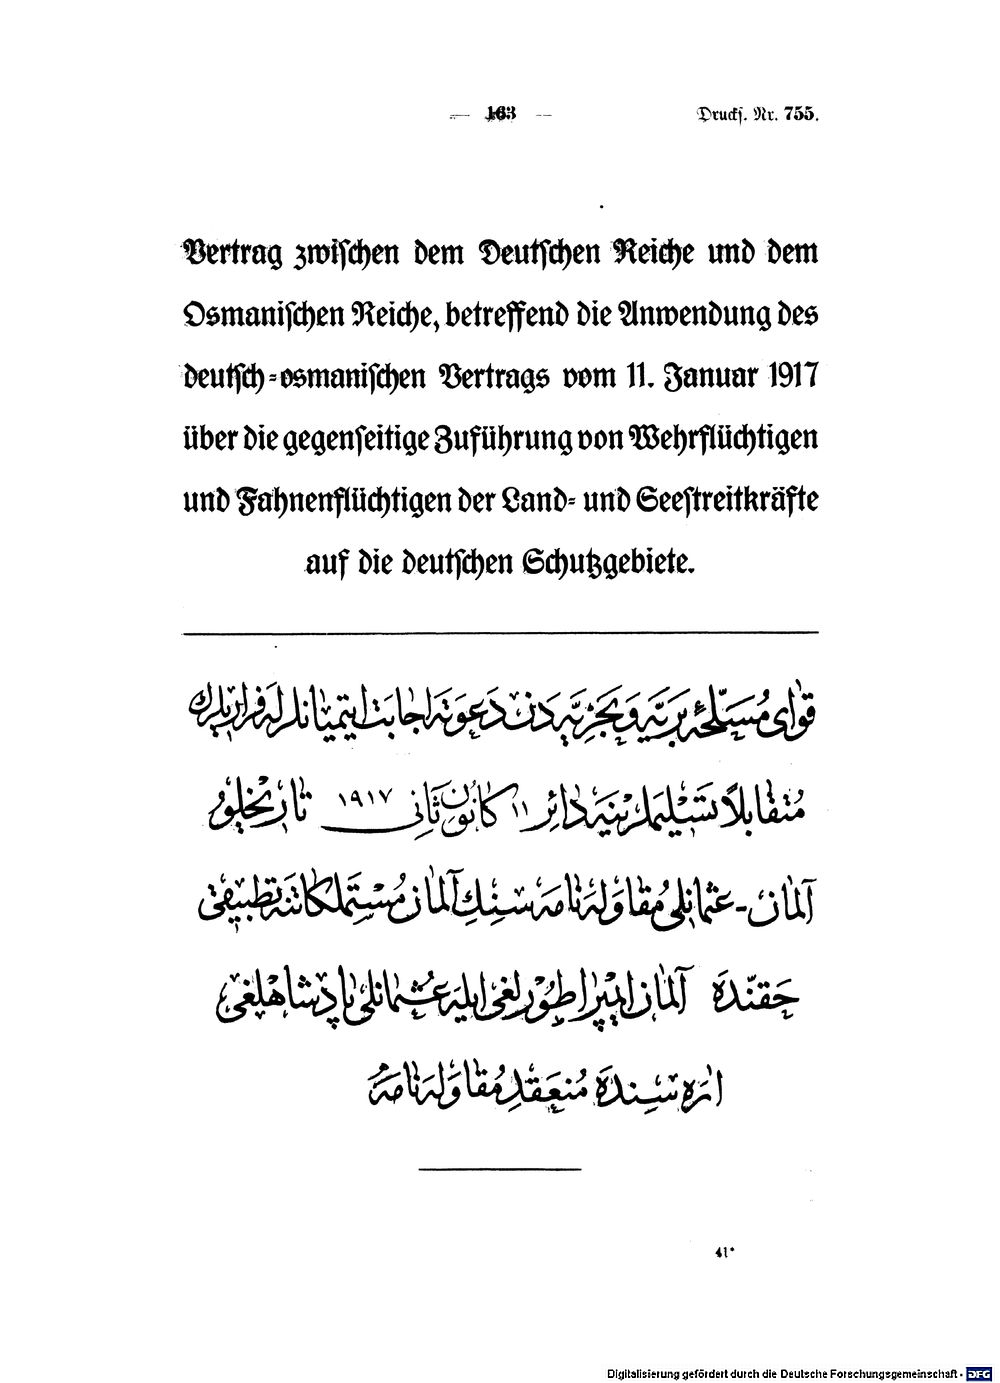 — 163 —
Drucks. Nr. 755.
Vertrag zwischen dem Deutschen Reiche und dem
Osmanischen Reiche, betreffend die Anwendung des
deutsch-osmanischen Vertrags vom 11. Januar 1917
über die gegenseitige Zuführung von Wehrflüchtigen
und Fahnenflüchtigen der Land- und Seestreitkräfte
auf die deutschen Schutzgebiete.
قوای مسلحهٔ بریه و بحریه دن دعوته اجابت ایتمیانلرله فراریلرك
متقابلاً تسلیملرینه دائر ١١ کانون ثانی ١٩١٧ تاریخلو
آلمان - عثمانلی مقاوله نامه سنك آلمان مستملکاتنه تطبیقی
حقنده آلمان ایمپراطورلغی ایله عثمانلی پادشاهلغی
اره سنده منعقد مقاوله نامه
41*
Digitalisierung gefördert durch die Deutsche Forschungsgemeinschaft - DFG